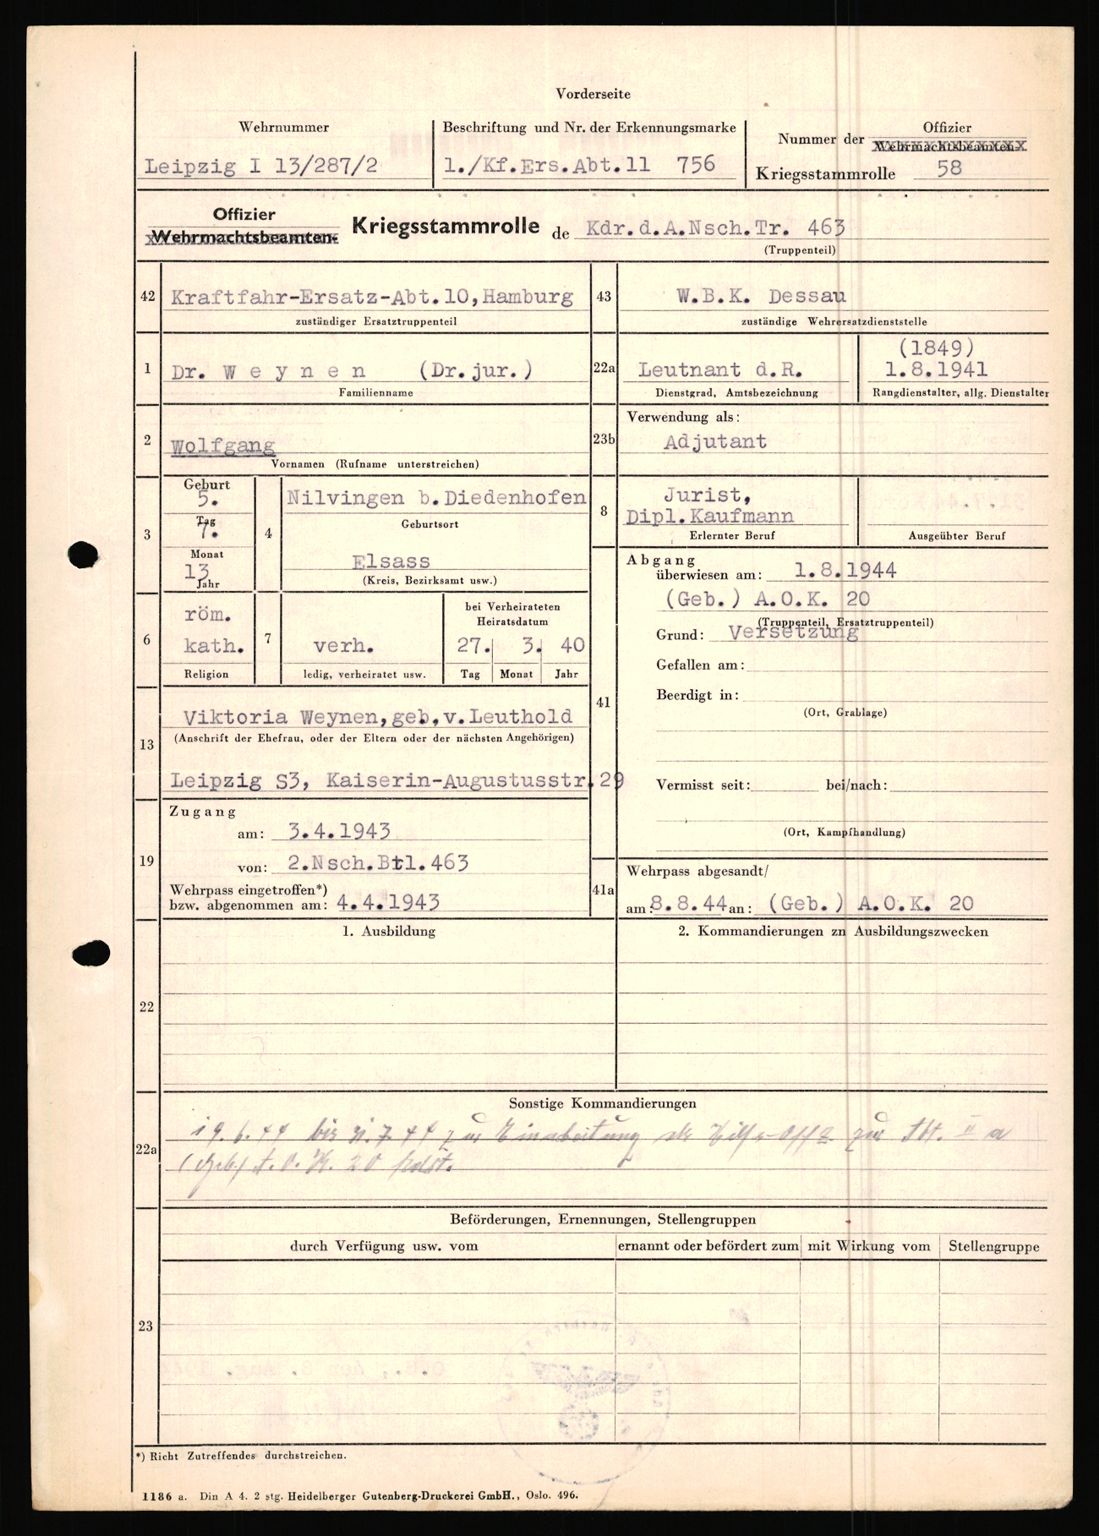 Vorderseite
Wehrnummer
Leipzig I 13/287/2
Beschriftung und Nr. der Erkennungsmarke
1./Kf.Ers.Abt.11 756
Nummer der Offizier
Wehrmachtsbeamten
Kriegsstammrolle 58
Offizier
Wehrmachtsbeamten-
Kriegsstammrolle de Kdr.d.A.Nsch.Tr. 463
(Truppenteil)
42
Kraftfahr-Ersatz-Abt.10,Hamburg
zuständiger Ersatztruppenteil
43
W.B.K. Dessau
zuständige Wehrersatzdienststelle
1
Dr. W e y n e n (Dr.jur.)
Familienname
22a
Leutnant d.R.
Dienstgrad, Amtsbezeichnung
(1849)
1.8.1941
Rangdienstalter, allg. Dienstalter
2
Wolfgang
Vornamen (Rufname unterstreichen)
23b
Verwendung als:
Adjutant
3
Geburt
5.
Tag
7.
Monat
13
Jahr
4
Nilvingen b.Diedenhofen
Geburtsort
Elsass
(Kreis, Bezirksamt usw.)
8
Jurist,
Dipl.Kaufmann
Erlernter Beruf
Ausgeübter Beruf
6
röm.
kath.
Religion
7
verh.
ledig, verheiratet usw.
bei Verheirateten
Heiratsdatum
27. 3. 40
Tag Monat Jahr
41
Abgang
überwiesen am: 1.8.1944
(Geb.) A.O.K. 20
(Truppenteil, Ersatztruppenteil)
Grund: Versetzung
Gefallen am:
Beerdigt in:
(Ort, Grablage)
Vermisst seit: bei/nach:
(Ort, Kampfhandlung)
13
Viktoria Weynen,geb.v.Leuthold
(Anschrift der Ehefrau, oder der Eltern oder der nächsten Angehörigen)
Leipzig S3, Kaiserin-Augustusstr.29
19
Zugang
am: 3.4.1943
von: 2.Nsch.Btl.463
Wehrpass eingetroffen*)
bzw. abgenommen am: 4.4.1943
41a
Wehrpass abgesandt/
am:8.8.44 an: (Geb.) A.O.K. 20
22
1. Ausbildung
2. Kommandierungen zn Ausbildungszwecken
22a
Sonstige Kommandierungen
19.6.44 bis 31.7.44 zur Einarbeitung als Hilfs-Offz zur Abt. II a
(Geb) A.O.K. 20 kdrt.
23
Beförderungen, Ernennungen, Stellengruppen
durch Verfügung usw. vom
ernannt oder befördert zum
mit Wirkung vom
Stellengruppe
*) Richt Zutreffendes durchstreichen.
1186 a. Din A 4. 2 stg. Heidelberger Gutenberg-Druckerei GmbH., Oslo. 496.